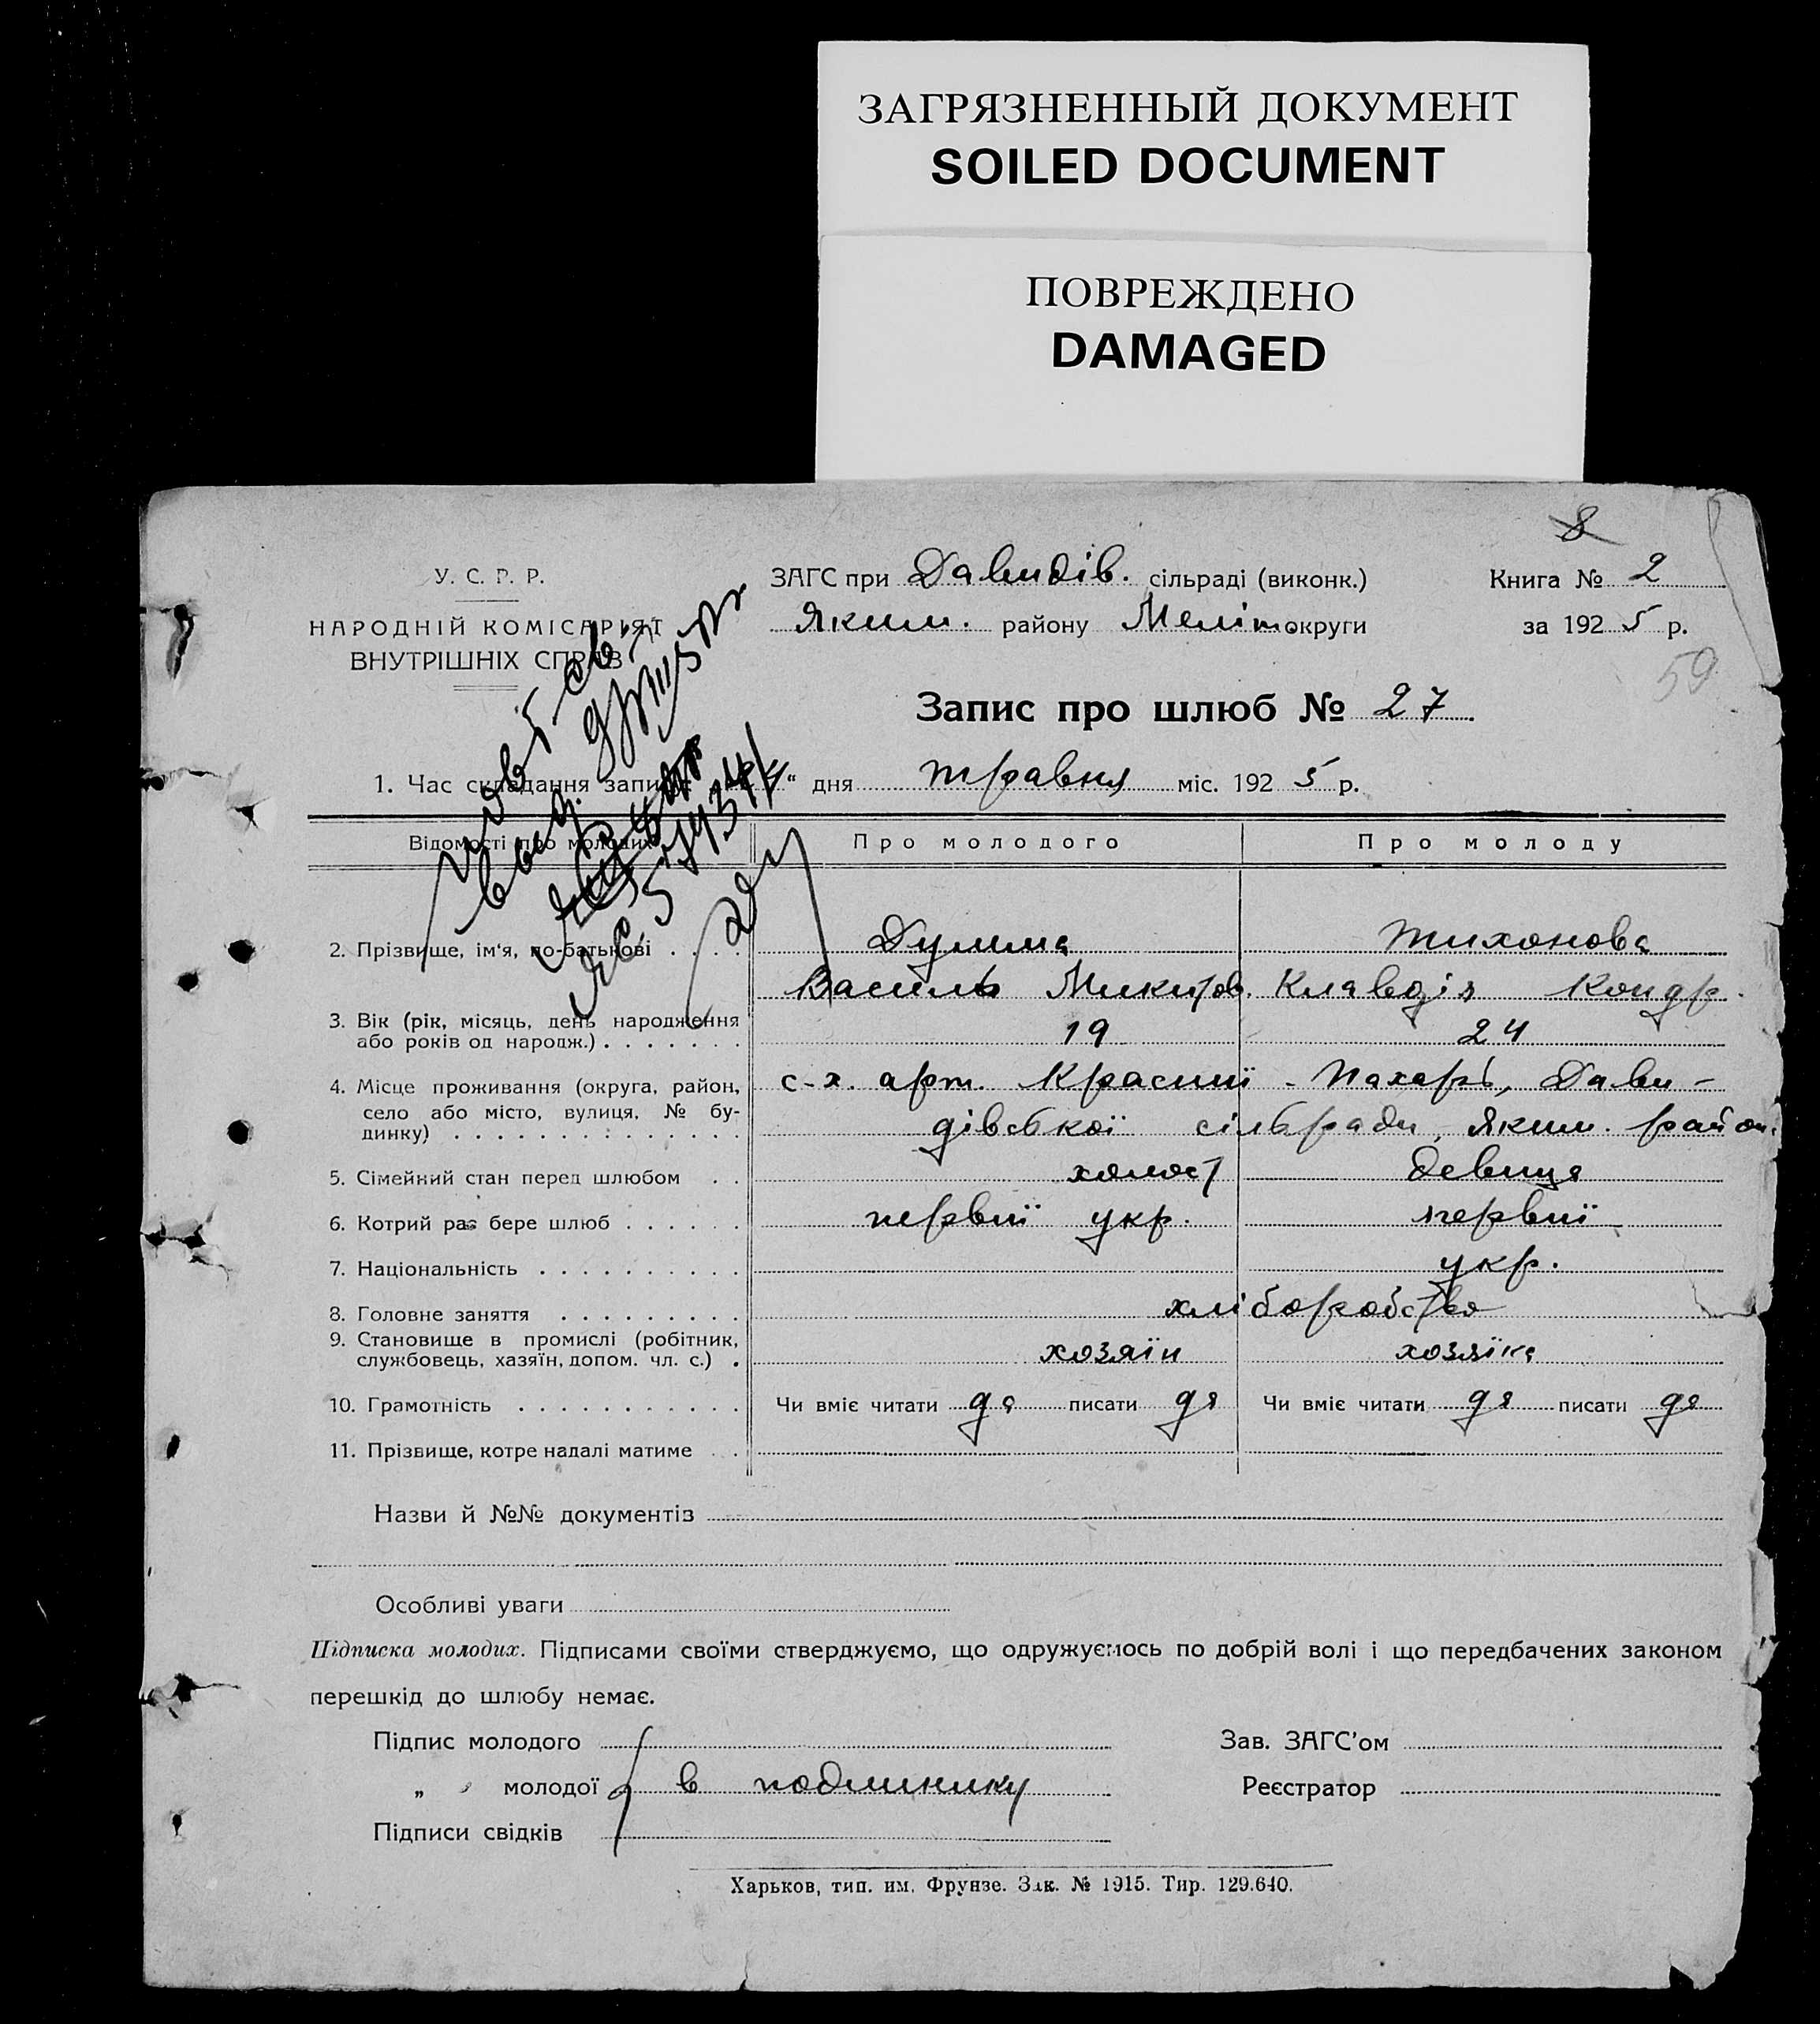 ЗАГРЯЗНЕННЫЙ ДОКУМЕНТ
SOILED DOCUMENT
ПОВРЕЖДЕНО
DAMAGED
8
У. С. Р. Р.
НАРОДНІЙ КОМІСАРІЯТ
ВНУТРІШНІХ СПРАВ
ЗАГС при Давидів. сільраді (виконк.)
Яким. району Меліт округи
Книга № 2
за 1925 р.
59
Запис про шлюб № 27
1. Час складання запису дня травня міс. 1925 р.
Відомості про молодих
Про молодого
Про молоду
2. Прізвище, ім'я, по-батькові . . . .
Тихонова
Василь Микитов. Клавдія Кондр.
3. Вік (рік, місяць, день народження
або років од народж.) . . . . . . . 19 24
4. Місце проживання (округа, район, с-х. арт. Красний - Пахарь, Дави-
село або місто, вулиця, № бу-
динку) . . . . . . . . . . . . . . дівської сільради, Яким. район.
5. Сімейний стан перед шлюбом . . холост девиця
6. Котрий раз бере шлюб . . . . . . первиї укр. первиї
7. Національність . . . . . . . . . . укр.
8. Головне заняття . . . . . . . . . хліборобство
9. Становище в промислі (робітник,
службовець, хазяїн, допом. чл. с.) . хозяїн хозяїка
10. Грамотність . . . . . . . . . . . Чи вміє читати да писати да Чи вміє читати да писати да
11. Прізвище, котре надалі матиме . .
Назви й №№ документів
Особливі уваги
Підписка молодих. Підписами своїми стверджуємо, що одружуємось по добрій волі і що передбачених законом
перешкід до шлюбу немає.
Підпис молодого
Зав. ЗАГС'ом
„ молодої в подлинику
Реєстратор
Підписи свідків
Харьков, тип. им. Фрунзе. Зак. № 1915. Тир. 129.640.